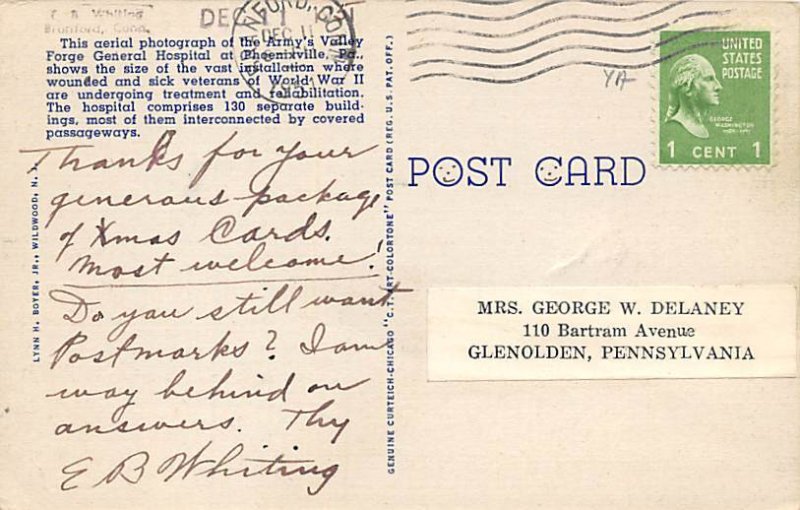 E. B. Whiting
Branford, Conn.
DEC 11
DEC 11
This aerial photograph of the Army's Valley
Forge General Hospital at Phoenixville, Pa.,
shows the size of the vast installation where
wounded and sick veterans of World War II
are undergoing treatment and rehabilitation.
The hospital comprises 130 separate build-
ings, most of them interconnected by covered
passageways.
Thanks for your
generous package
of Xmas Cards.
Most welcome!
Do you still want
Postmarks? I am
way behind on
answers. Thy
E B Whiting
LYNN H. BOYER, JR., WILDWOOD, N. J.
GENUINE CURTEICH-CHICAGO "C. T. ART-COLORTONE" POST CARD (REG. U. S. PAT. OFF.)
POST CARD
UNITED
STATES
POSTAGE
GEORGE
WASHINGTON
1 CENT 1
MRS. GEORGE W. DELANEY
110 Bartram Avenue
GLENOLDEN, PENNSYLVANIA